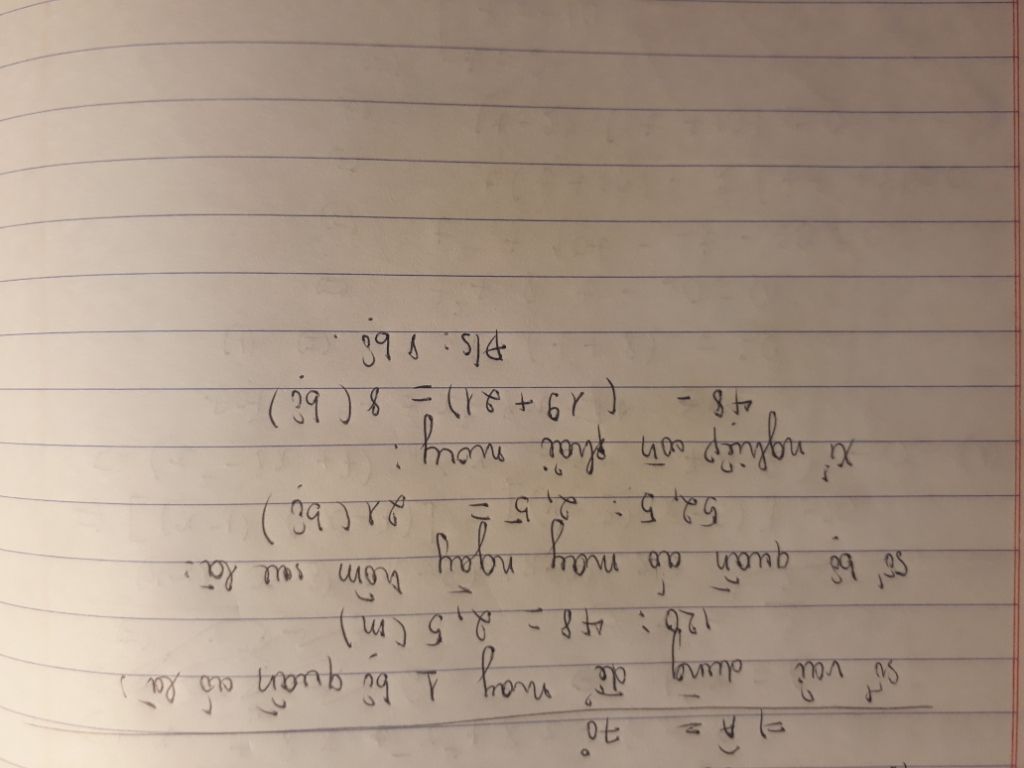 =) Â = 70°
Số vải dùng để may 1 bộ quần áo là:
120 : 48 = 2,5 (m)
Số bộ quần áo may ngày hôm sau là:
52,5 : 2,5 = 21 (bộ)
Xí nghiệp còn phải may :
48 - (19 + 21) = 8 (bộ)
Đ/s : 8 bộ.